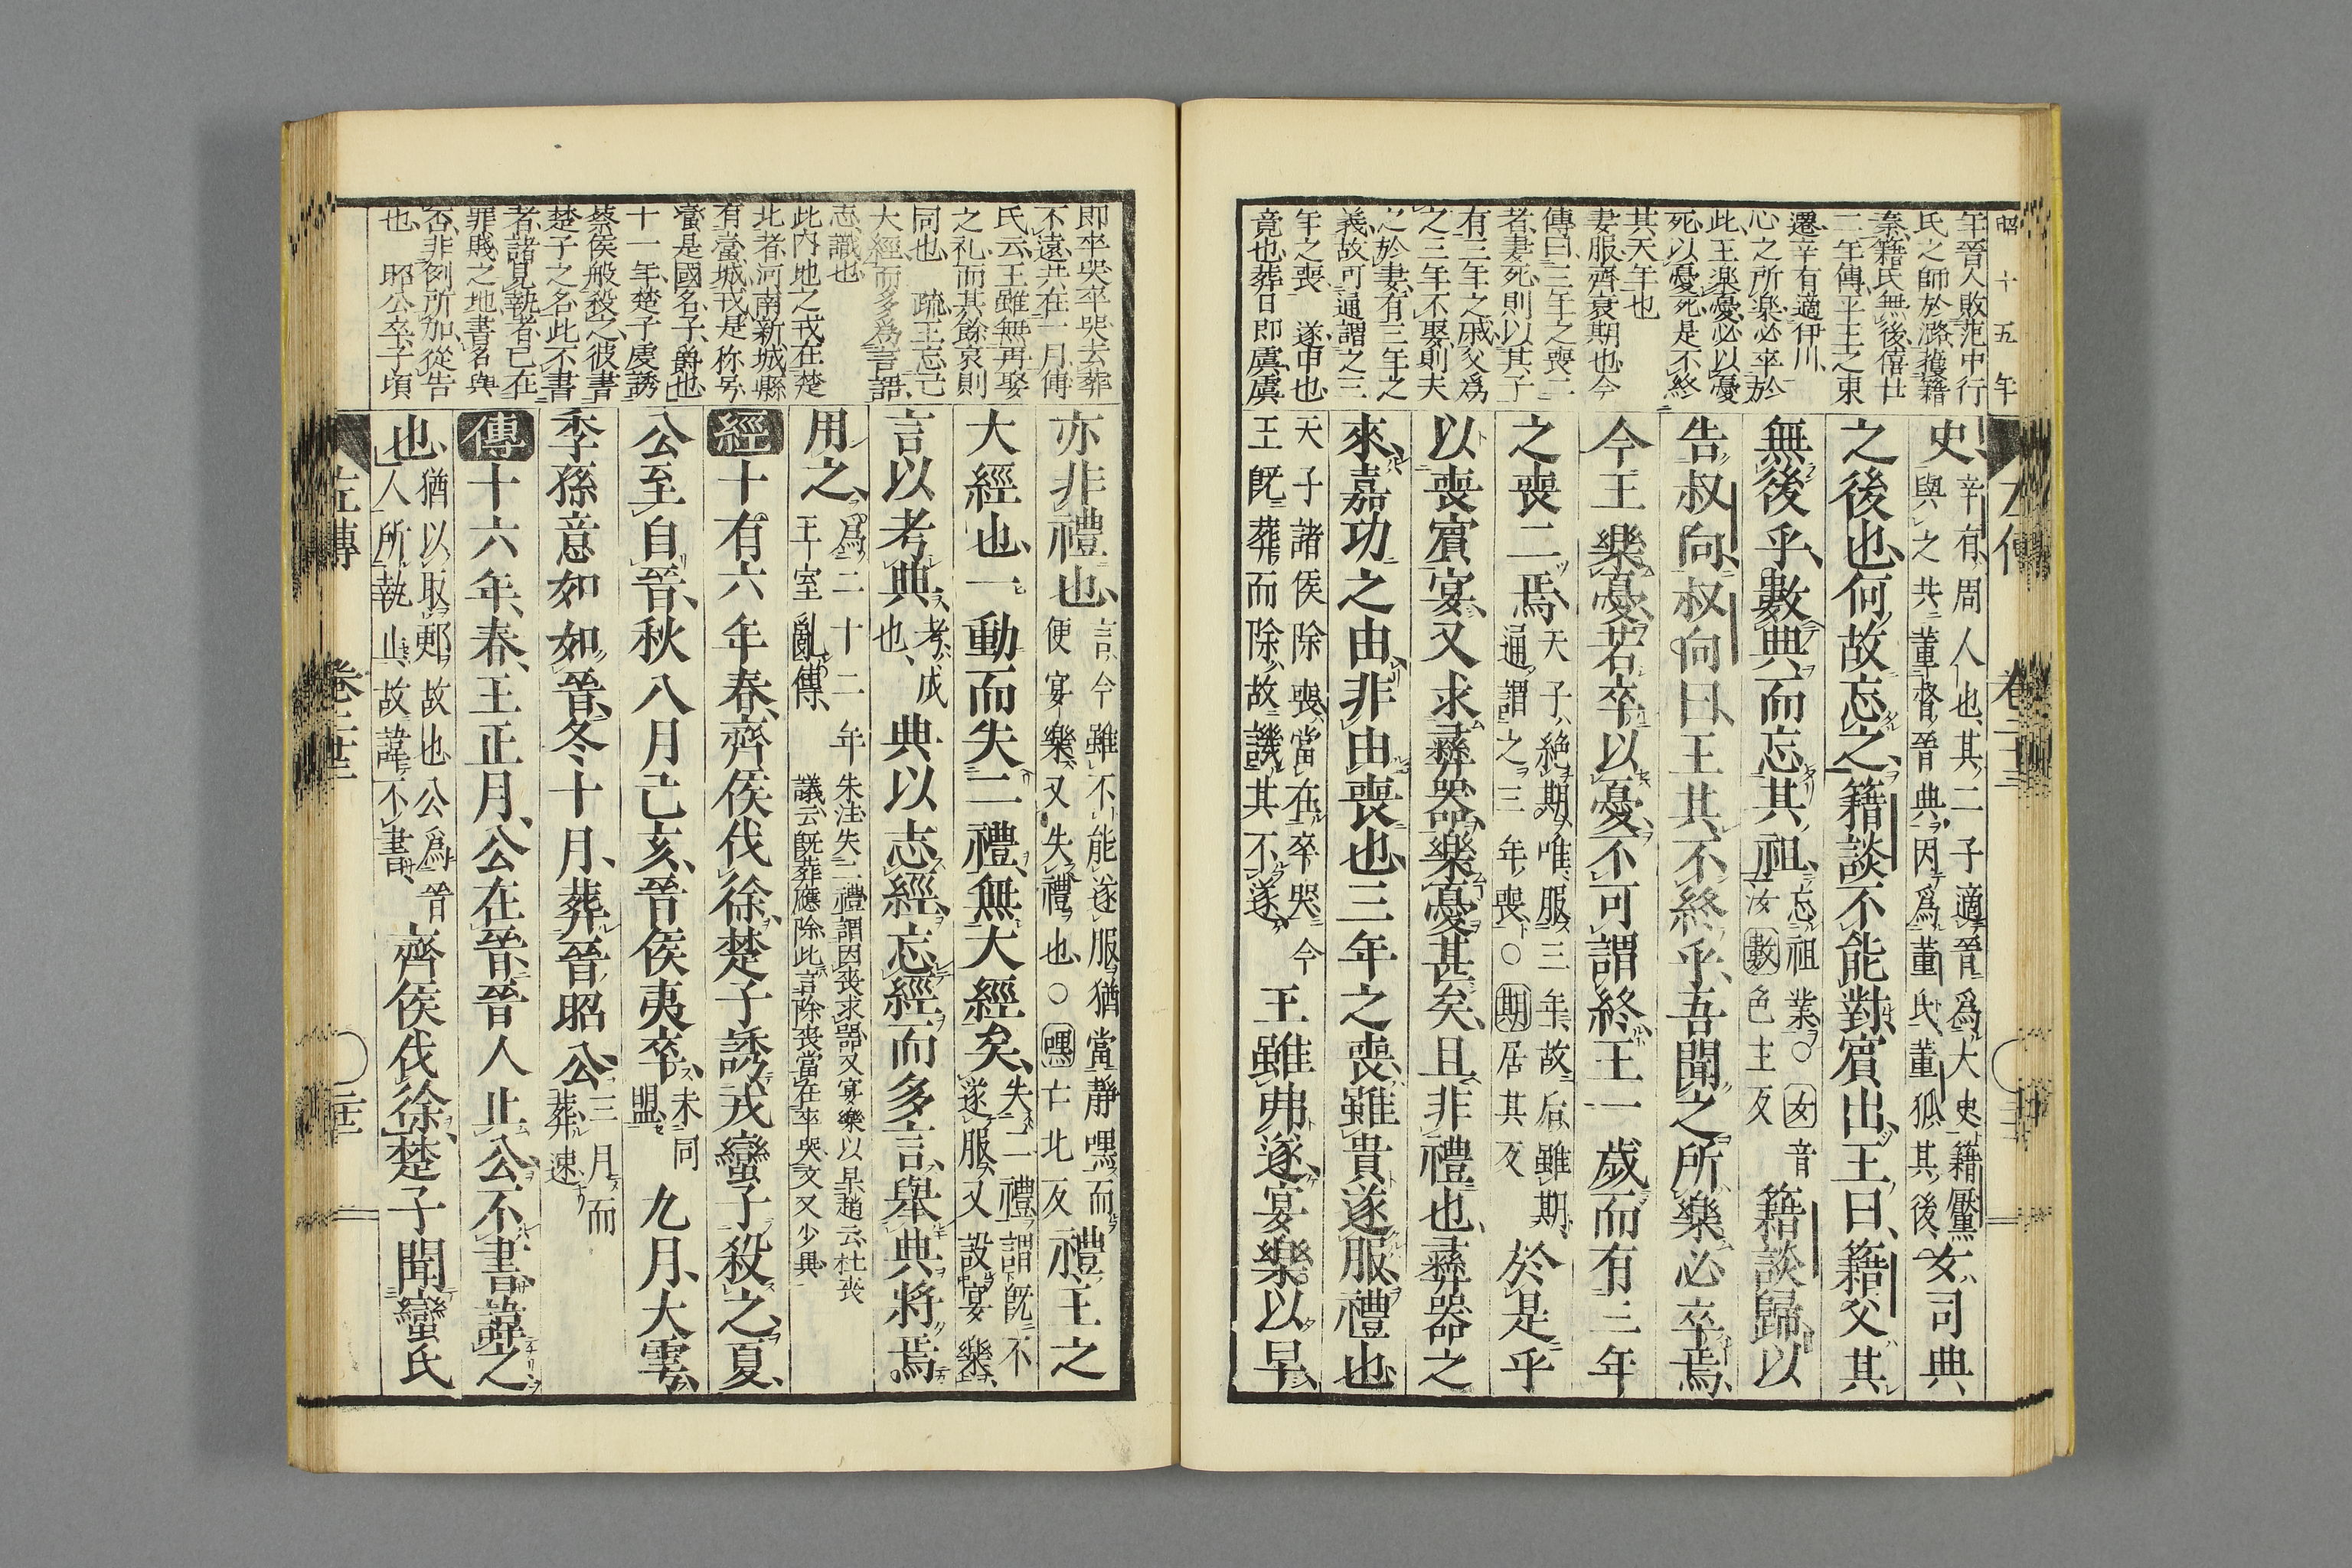 昭十五年
年晉人敗范中行
氏之師於潞獲籍
秦籍氏無後僖廿
二年傳平王之東
遷辛有適伊川
心之所楽必卒於
此王楽憂必以憂
死以憂死是不終
其天年也
妻服齊衰期也今
傳曰三年之喪二
者妻死則以其子
有三年之戚父爲
之三年不娶則夫
之於妻有三年之
義故可通謂之三
年之喪 遂申也
竟也葬日即虞虞
史辛有周人也其二子適晉爲大史籍黶與之共董督晉典因爲董氏董狐其後女司典
之後也何故忘之籍談不能對賓出王曰籍父其
無後乎數典而忘其祖忘祖業○女音汝數色主反籍談歸以
告叔向叔向曰王其不終乎吾聞之所樂必卒焉
今王樂憂若卒以憂不可謂終王一歲而有三年
之喪二焉天子絶期唯服三年故后雖期通謂之三年喪○期居其反於是乎
以喪賓宴又求彝器樂憂甚矣且非禮也彝器之
來嘉功之由非由喪也三年之喪雖貴遂服禮也
天子諸侯除喪當在卒哭今王既葬而除故譏其不遂王雖弗遂宴樂以早
即卒哭卒哭去葬
不遠共在一月傅
氏云王雖無再娶
之礼而其餘哀則
同也 疏王忘己
大經而多爲言語
志識也
此内地之戎在楚
北者河南新城縣
有蠻城戎是称号
蠻是國名子爵也
十一年楚子虔誘
蔡侯般殺之彼書
楚子之名此不書
者諸見執者已在
罪賤之地書名與
否非例所加從告
也 昭公卒子頃
亦非禮也言今雖不能遂服猶當靜嘿而便宴樂又失禮也○嘿亡北反禮王之
大經也一動而失二禮無大經矣失二禮謂既不遂服又設宴樂
言以考典考成也典以志經忘經而多言舉典將焉
用之爲二十二年王室亂傳朱注失二禮謂因喪求器又宴樂以早趙云杜喪議云既葬應除此言除喪當在卒哭文又少異
經十有六年春齊侯伐徐楚子誘戎蠻子殺之夏
公至自晉秋八月己亥晉侯夷卒未同盟九月大雩
季孫意如如晉冬十月葬晉昭公三月而葬速
傳十六年春王正月公在晉晉人止公不書諱之
也猶以取鄆故也公爲晉人所執止故諱不書齊侯伐徐楚子聞蠻氏
左傳 卷二十三